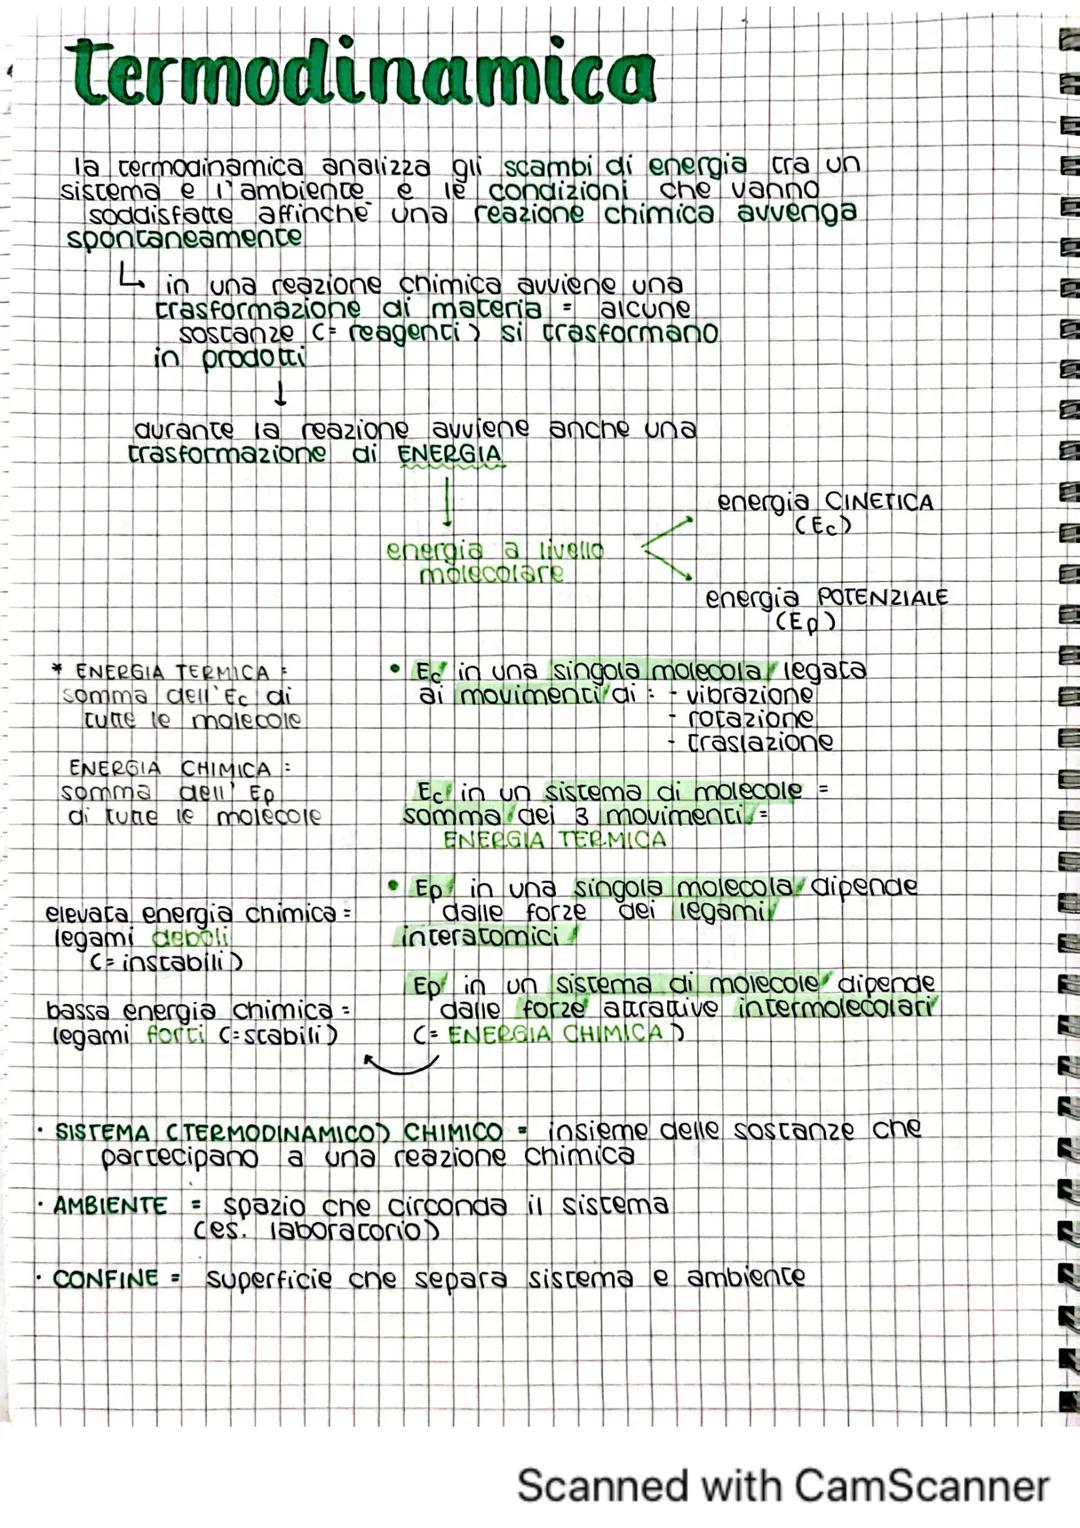 termodinamica
la termodinamica analizza gli scambi di energia tra un
sistema e l'ambiente e le condizioni che vanno
soddisfatte affinché una reazione chimica avvenga
spontaneamente
↳ in una reazione chimica avviene una
trasformazione di materia = alcune
sostanze (= reagenti) si trasformano
in prodotti
↓
durante la reazione avviene anche una
trasformazione di ENERGIA
energia a livello
molecolare
energia CINETICA
(Ec)
energia POTENZIALE
(Ep)
* ENERGIA TERMICA =
somma dell'Ec di
tutte le molecole
ENERGIA CHIMICA :
somma dell' Ep
di tutte le molecole
elevata energia chimica =
legami deboli
(= instabili)
bassa energia chimica =
legami forti (= stabili)
• Ec in una singola molecola legata
ai movimenti di : - vibrazione
- rotazione
- traslazione
Ec in un sistema di molecole =
somma dei 3 movimenti =
ENERGIA TERMICA
• Ep in una singola molecola dipende
dalle forze dei legami
interatomici
Ep in un sistema di molecole dipende
dalle forze attrattive intermolecolari
(= ENERGIA CHIMICA)
· SISTEMA (TERMODINAMICO) CHIMICO = insieme delle sostanze che
partecipano a una reazione chimica
· AMBIENTE = spazio che circonda il sistema
(es. laboratorio)
· CONFINE = superficie che separa sistema e ambiente
Scanned with CamScanner